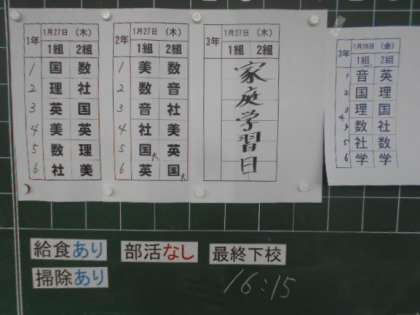 1年 1月27日（木）
1組 2組
1 国 数
2 理 社
3 英 国
4 美 英
5 数 理
6 社 美
2年 1月27日（木）
1組 2組
1 美 数
2 数 音
3 音 社
4 社 美
5 国 英
6 英 国
3年 1月27日（木）
1組 2組
家庭学習日
3年 1月28日（金）
1組 2組
1 音 英
2 国 理
3 理 国
4 数 社
5 社 数
6 学 学
給食あり 部活なし 最終下校
掃除あり 16:15